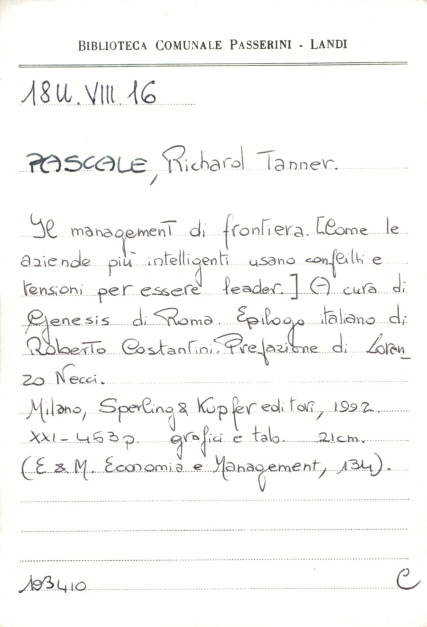 BIBLIOTECA COMUNALE PASSERINI - LANDI
18U.VIII.16
PASCALE, Richard Tanner.
Il management di frontiera. [Come le
aziende più intelligenti usano conflitti e
tensioni per essere leader.] (A cura di
Genesis di Roma. Epilogo italiano di
Roberto Costantini. Prefazione di Loren_
zo Necci.
Milano, Sperling & Kupfer editori, 1992.
XXI-453 p. grafici e tab. 21cm.
(E & M. Economia e Management, 134).
193410 C